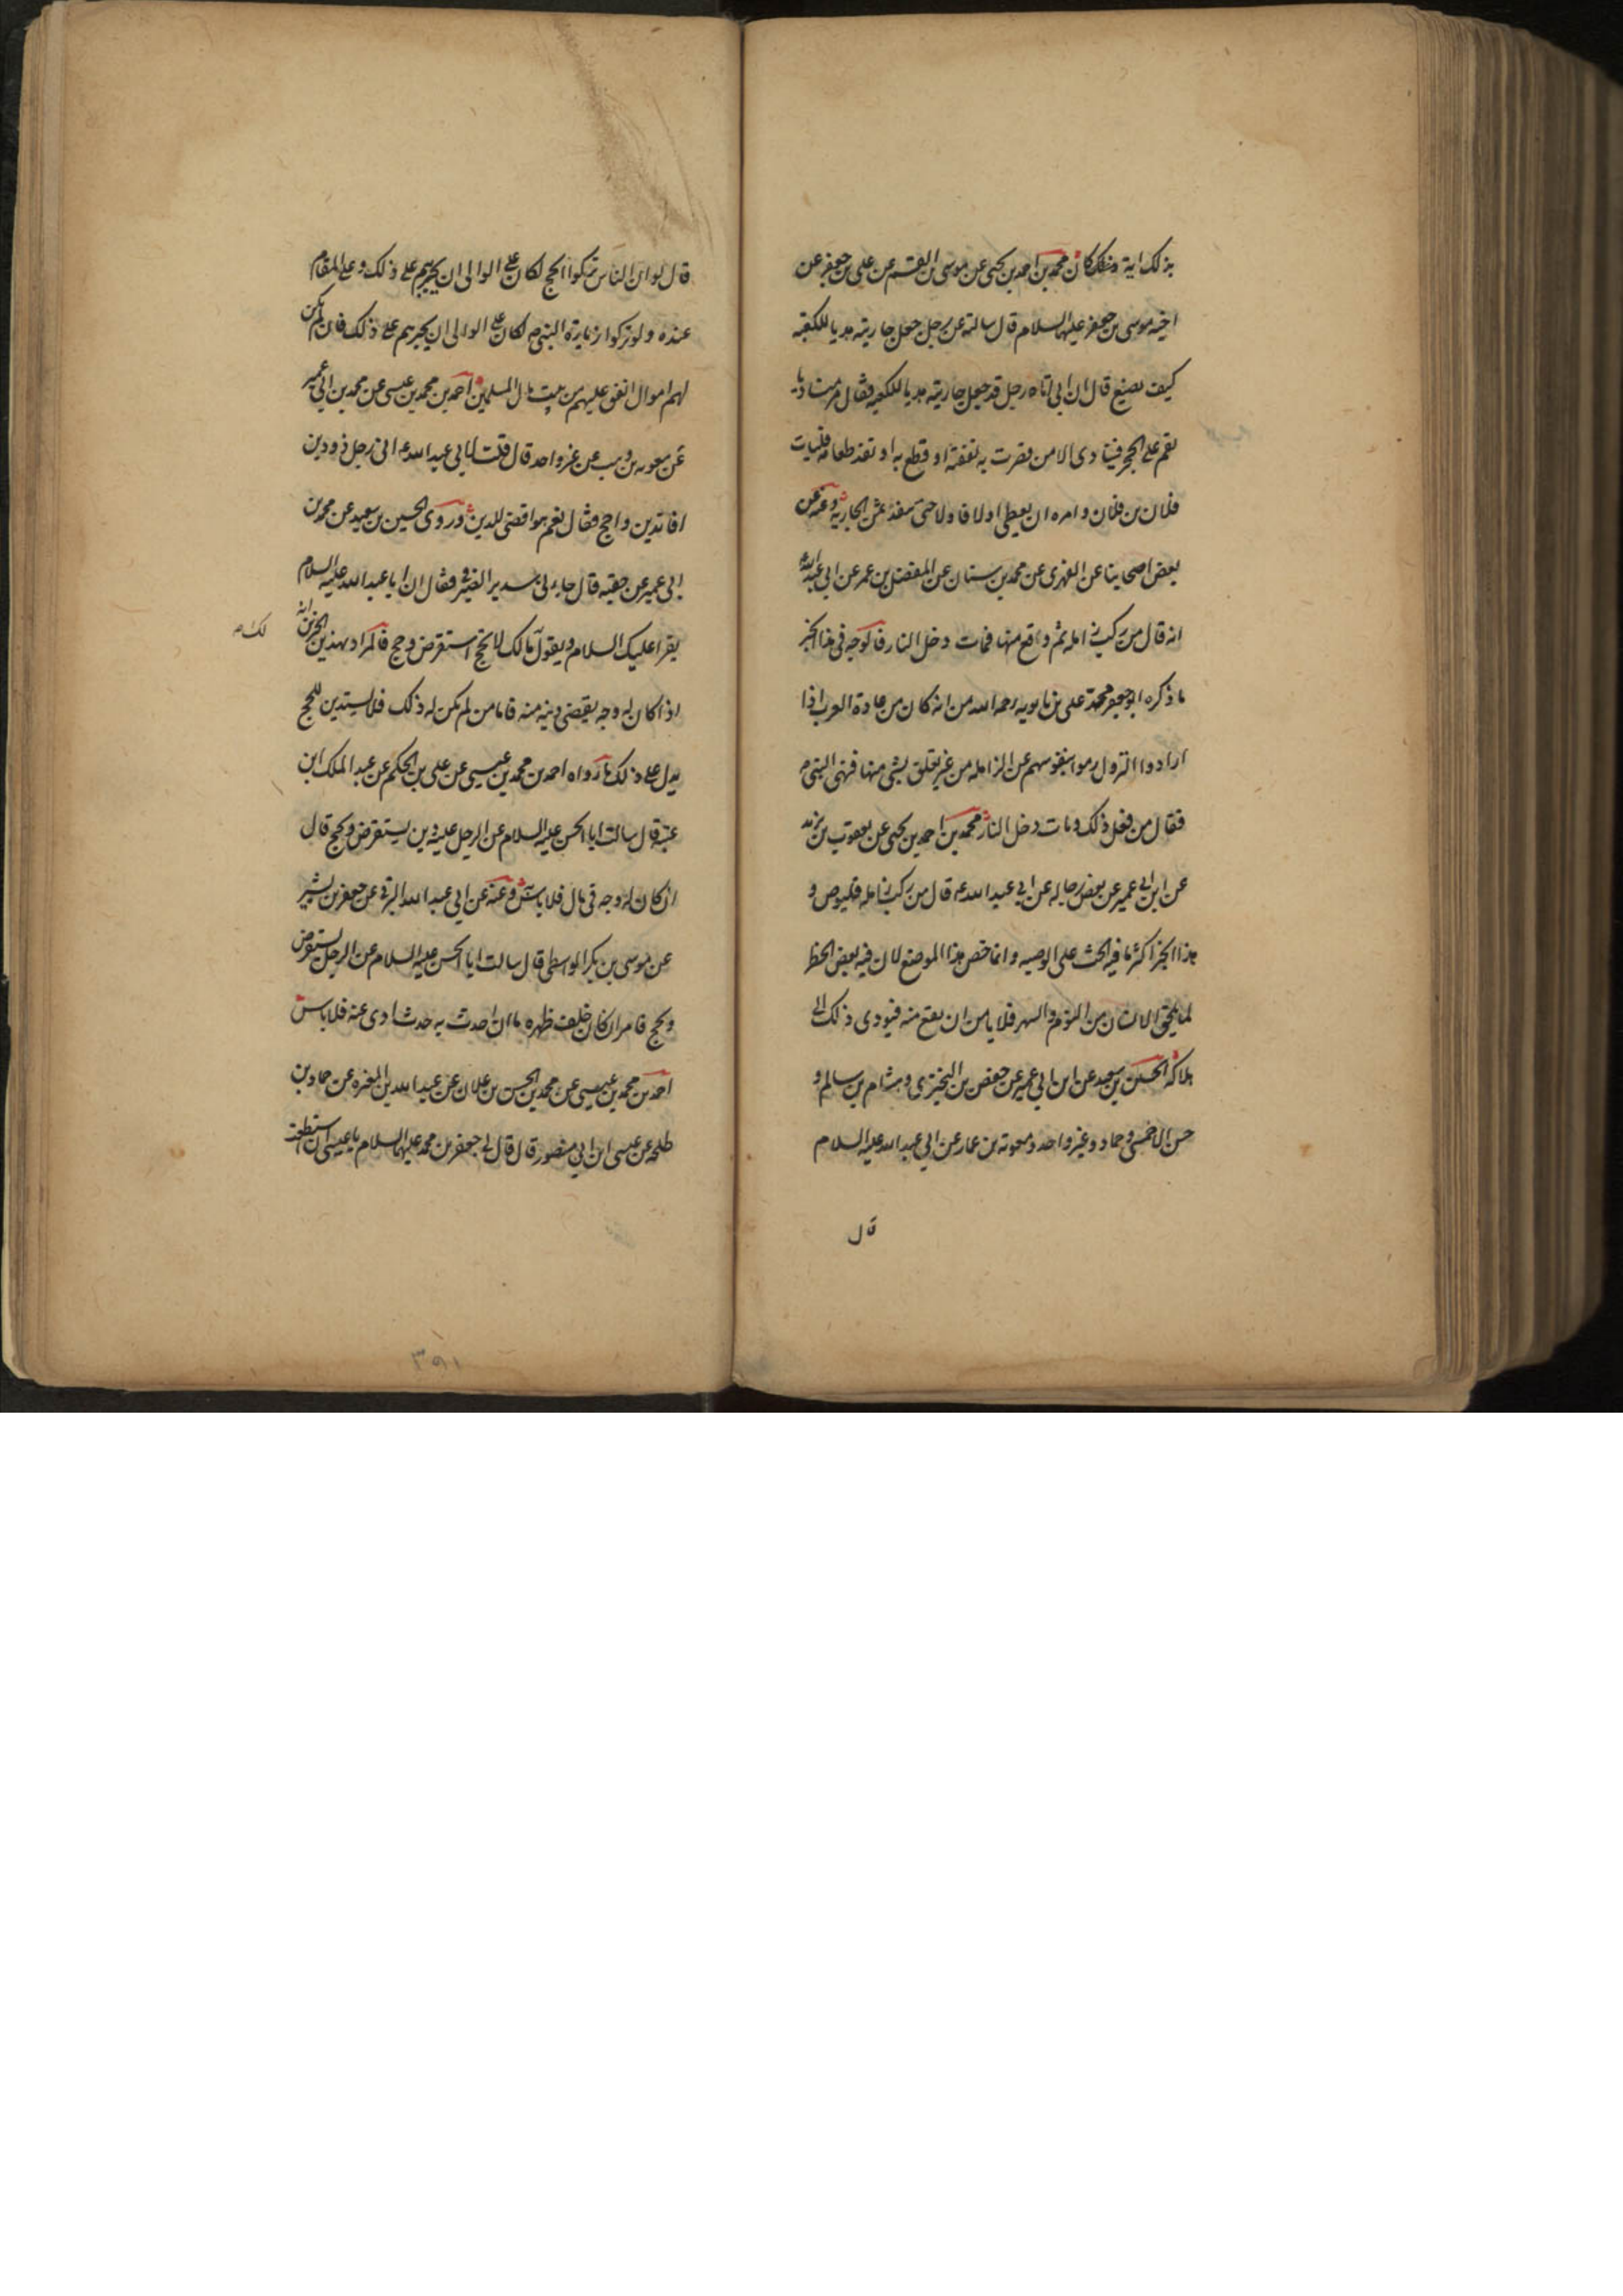 بذلك اية محمد بن احمد بن يحيى عن موسى بن القسم عن على بن جعفر عن
اخيه موسى بن جعفر عليهما السلام قال سالته عن رجل جعل جاريته هديا للكعبه
كيف يصنع قال ان ابى اتاه رجل قد جعل جاريته هديا للكعبه فقال مر مناديا
يقم على الحجر فينادى الا من قصرت به نفقته او قطع به او نفد طعامه فليات
فلان بن فلان وامره ان يعطى اولا فاولا حتى ينفد ثمن الجاريه وعنه عن
بعض اصحابنا عن النهدى عن محمد بن سنان عن المفضل بن عمر عن ابى عبد الله
انه قال من ركب زامله ثم وقع منها فمات دخل النار فالوجه فى هذا الخبر
ما ذكره ابو جعفر محمد بن على بن بابويه رحمه الله من انه كان من عادة العرب اذا
ارادوا النزول رموا بنفوسهم عن الزامله من غير تعلق بشى منها فنهى النبى ص
فقال من فعل ذلك ومات دخل النار محمد بن احمد بن يحيى عن يعقوب بن يزيد
عن ابن ابى عمير عن بعض رجاله عن ابى عبد الله ع قال من ركب زامله فليوص و
هذا الخبر اكثر ما فيه الحث على الوصيه وانما خص هذا الموضع لان فيه بعض الخطر
لما يلحق الانسان من النوم والسهر فلا يامن ان يقع منه فيودى ذلك الى
هلاكه الحسين بن سعيد عن ابن ابى عمير عن حفص بن البخترى وهشام بن سالم و
حسين الاحمسى وحماد وغير واحد ومعوية بن عمار عن ابى عبد الله عليه السلام
قال
قال لو ان الناس تركوا الحج لكان على الوالى ان يجبرهم على ذلك وعلى المقام
عنده ولو تركوا زيارة النبى ص لكان على الوالى ان يجبرهم على ذلك فان لم يكن
لهم اموال انفق عليهم من بيت مال المسلمين احمد بن محمد بن عيسى عن محمد بن ابى عمير
عن معويه بن وهب عن غير واحد قال قلت لابى عبد الله ع انى رجل ذو دين
افاتدين واحج فقال نعم هو اقضى للدين وروى الحسين بن سعيد عن محمد بن
ابى عمير عن حقبه قال جاءنى سدير الصيرفى فقال ان ابا عبد الله عليه السلام
يقرا عليك السلام ويقول مالك لا تحج استقرض وحج فالمراد بهذين الخبرين انه
اذا كان له وجه يقضى دينه منه فاما من لم يكن له ذلك فلا يستدين للحج
يدل على ذلك ما رواه احمد بن محمد بن عيسى عن على بن الحكم عن عبد الملك ابن
عتبه قال سالت ابا الحسن عليه السلام عن الرجل عليه دين يستقرض ويحج قال
ان كان له وجه فى مال فلا باس وعنه عن ابى عبد الله البرقى عن جعفر بن بشير
عن موسى بن بكر الواسطى قال سالت ابا الحسن عليه السلام عن الرجل يستقرض
ويحج فامر ان كان خلف ظهره ما ان احدث به حدث ادى عنه فلا باس
احمد بن محمد بن عيسى عن محمد بن الحسن بن علان عن عبد الله بن المغيره عن حماد بن
طلحه عن عيسى ابن ابى منصور قال قال لى جعفر بن محمد عليهما السلام يا عيسى ان استطعت
٣٩١